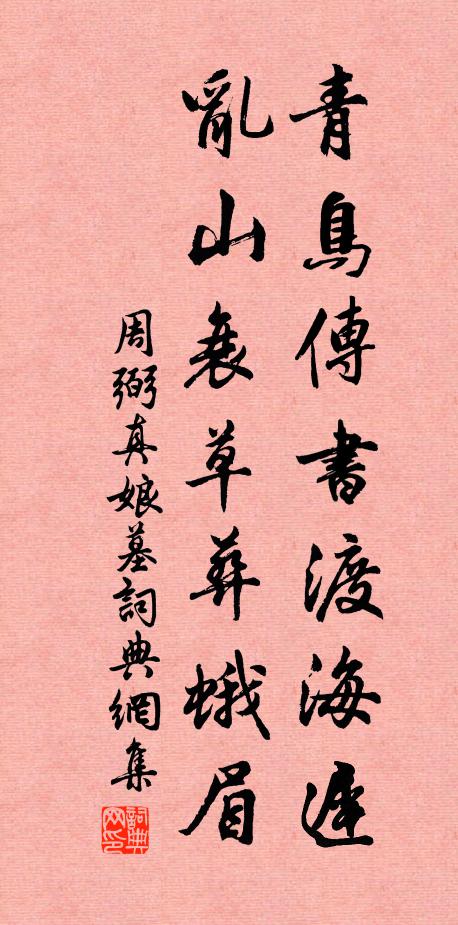 青鳥傳書渡海遲
亂山衰草葬蛾眉
周弼真娘墓詞典網集
詞典网印